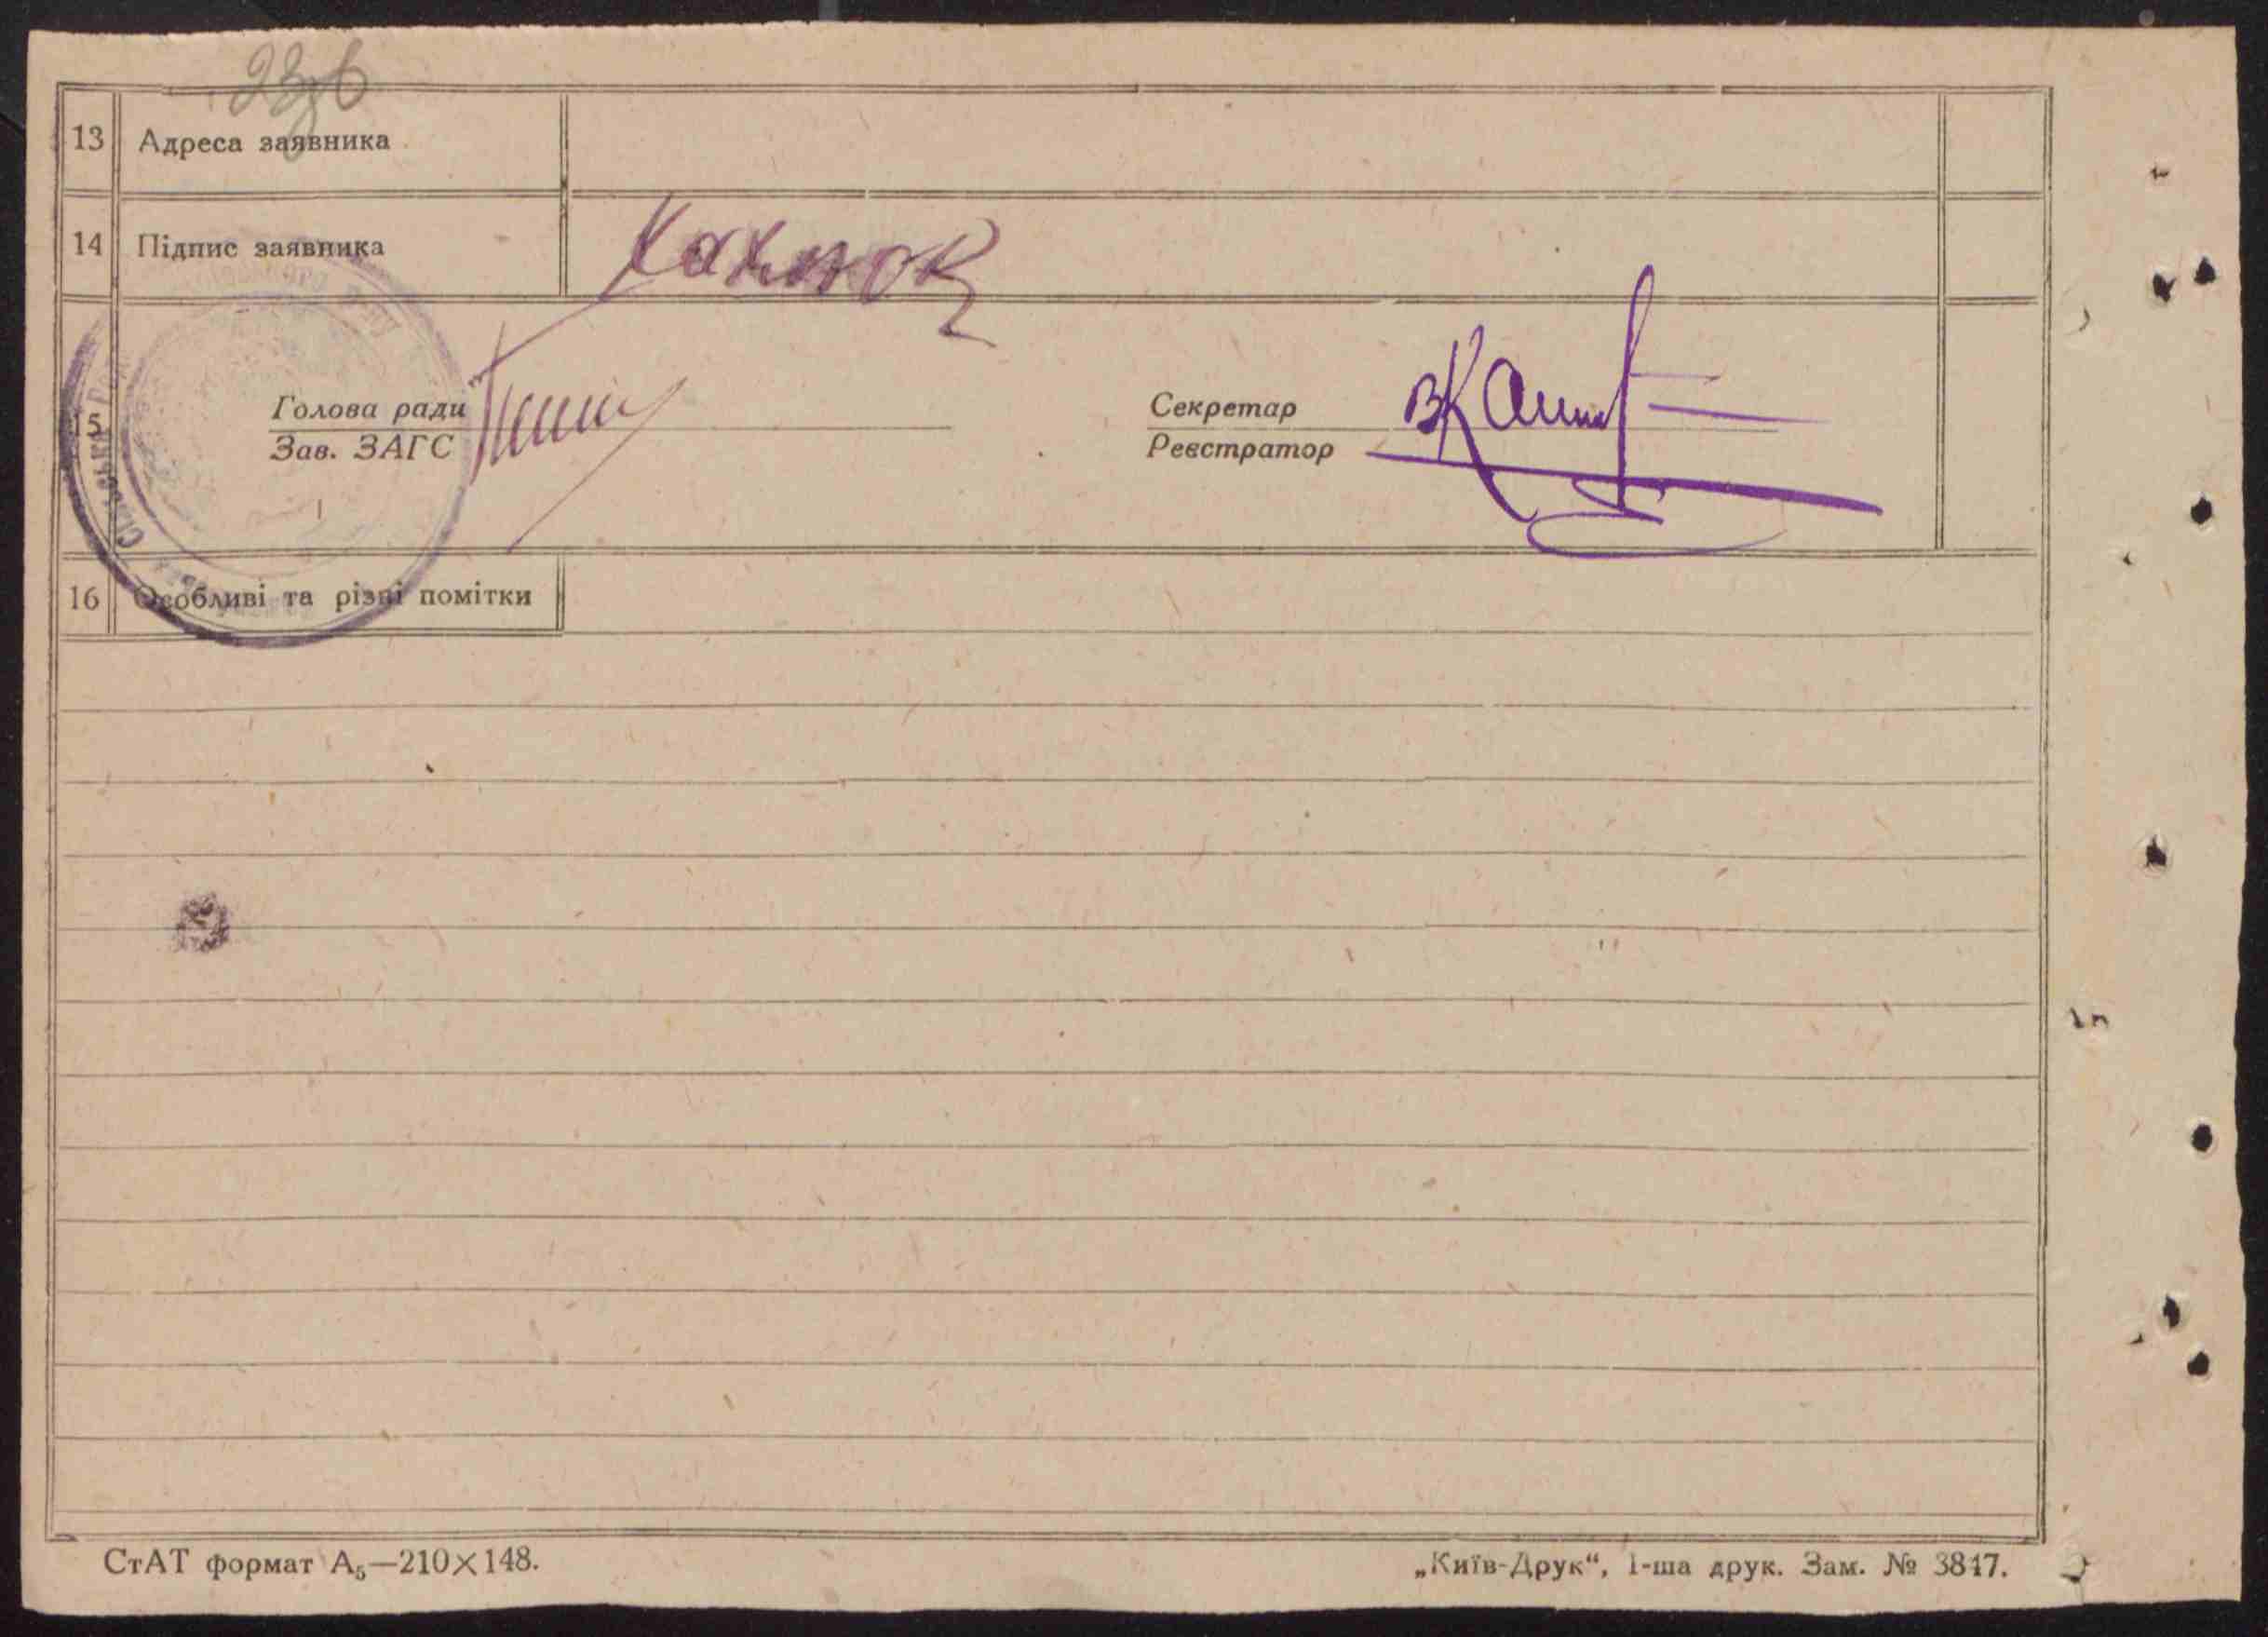 23зв
13 Адреса заявника
14 Підпис заявника
15 Голова ради
Зав. ЗАГС
Секретар
Реєстратор
16 Особливі та різні помітки
СтАТ формат А₅—210×148.
„Київ-Друк“, 1-ша друк. Зам. № 3817.